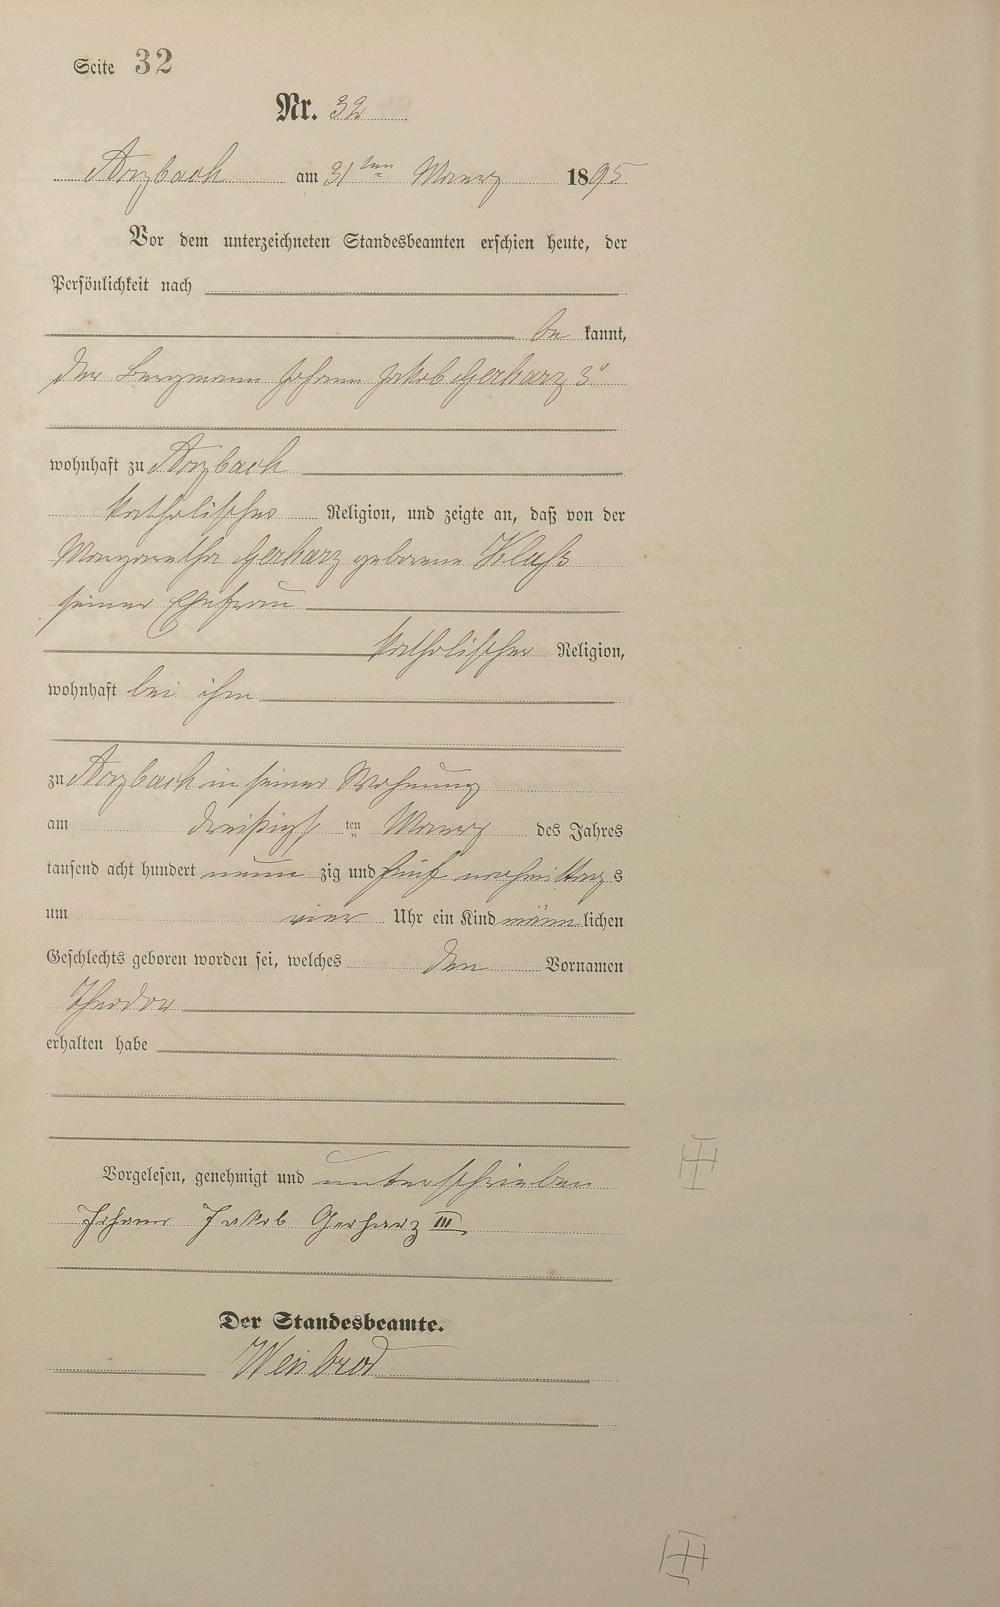 Seite 32
Nr. 32
Arzbach am 31ten Maerz 1895
Vor dem unterzeichneten Standesbeamten erschien heute, der
Persönlichkeit nach
be kannt,
der Bergmann Johann Jakob Gerharz 3r
wohnhaft zu Arzbach
katholischer Religion, und zeigte an, daß von der
Margaretha Gerharz geborene Klaß
seiner Ehefrau
katholischer Religion,
wohnhaft bei ihm
zu Arzbach in seiner Wohnung
am dreißigs ten Maerz des Jahres
tausend acht hundert neun zig und fünf nachmittags
um vier Uhr ein Kind männ lichen
Geschlechts geboren worden sei, welches den Vornamen
Theodor
erhalten habe
Vorgelesen, genehmigt und unterschrieben
Johann Jakob Gerharz III
Der Standesbeamte.
Weisbrod